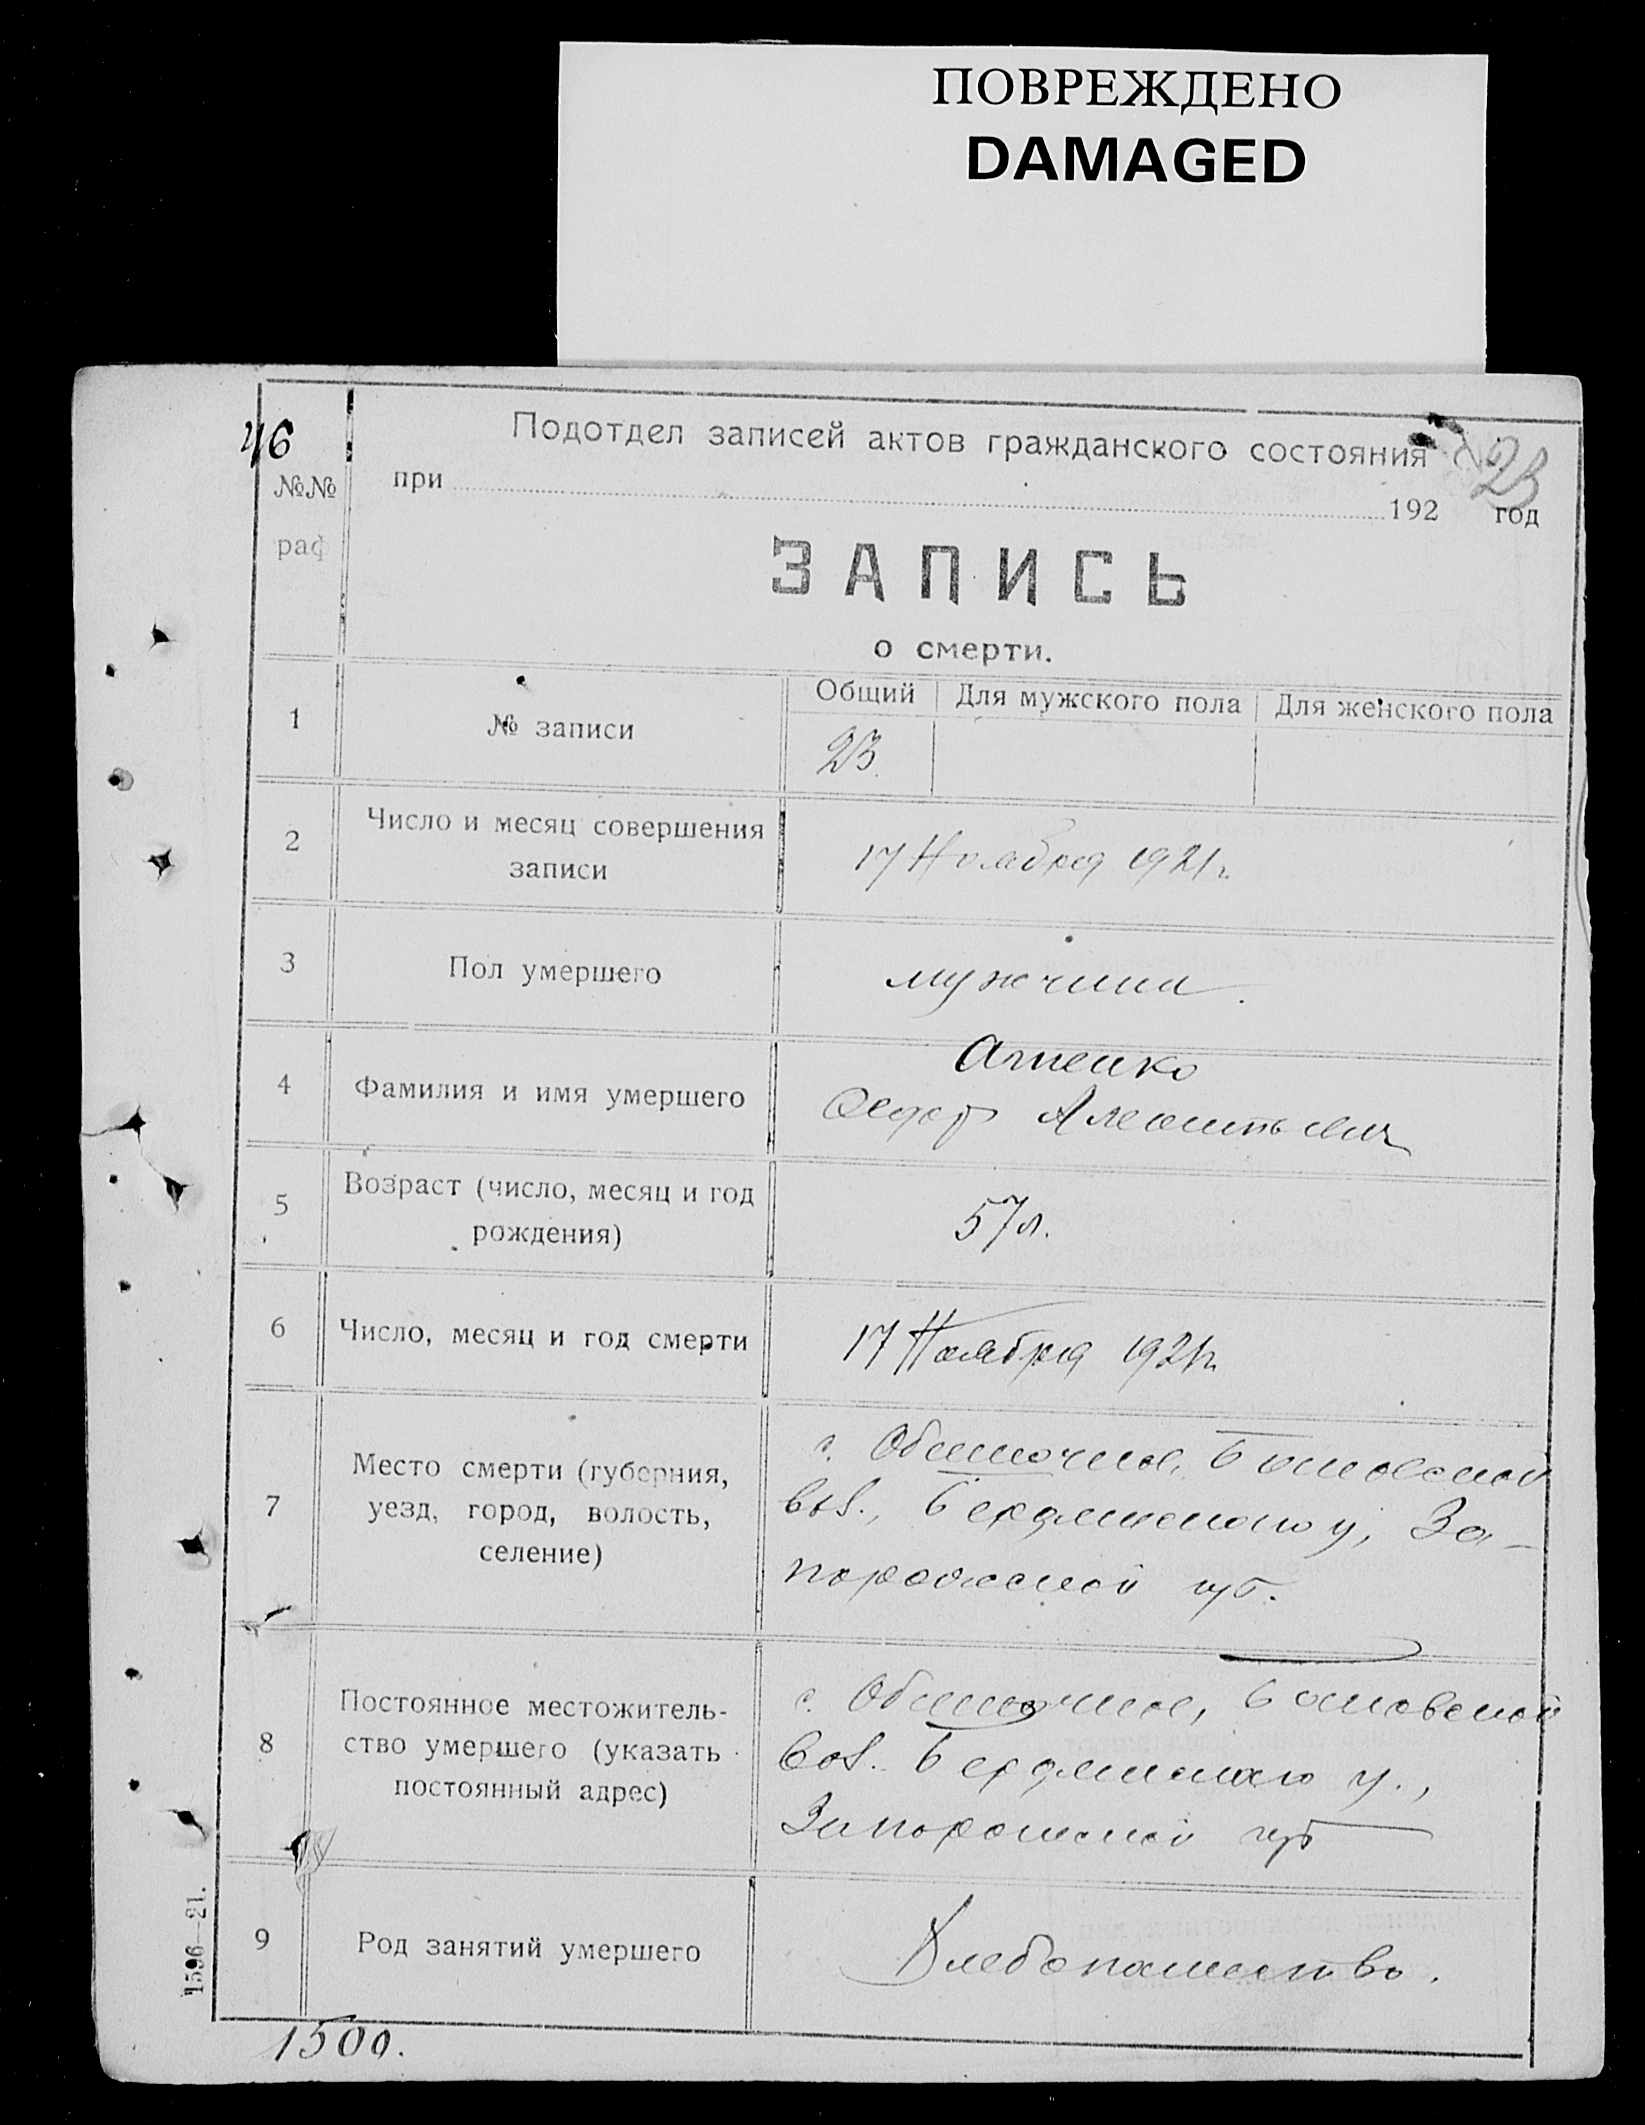 ПОВРЕЖДЕНО
DAMAGED
46
Подотдел записей актов гражданского состояния
23
№№
при 192 год
раф
ЗАПИСЬ
о смерти.
Общий Для мужского пола Для женского пола
1 № записи 23.
2 Число и месяц совершения
записи
17 Ноября 1921г.
3 Пол умершего
мужчина.
4 Фамилия и имя умершего
Федор Леонтьевич
5 Возраст (число, месяц и год
рождения)
57 л.
6 Число, месяц и год смерти
17 Ноября 1921г.
7 Место смерти (губерния,
уезд, город, волость,
селение)
с. Обиточное,
вол., Бердянского у, За-
порожской губ.
8 Постоянное местожитель-
ство умершего (указать
постоянный адрес)
с. Обиточное,
вол. Бердянского у.,
Запорожской губ
9 Род занятий умершего
Хлебопашество.
1596—21.
1500.